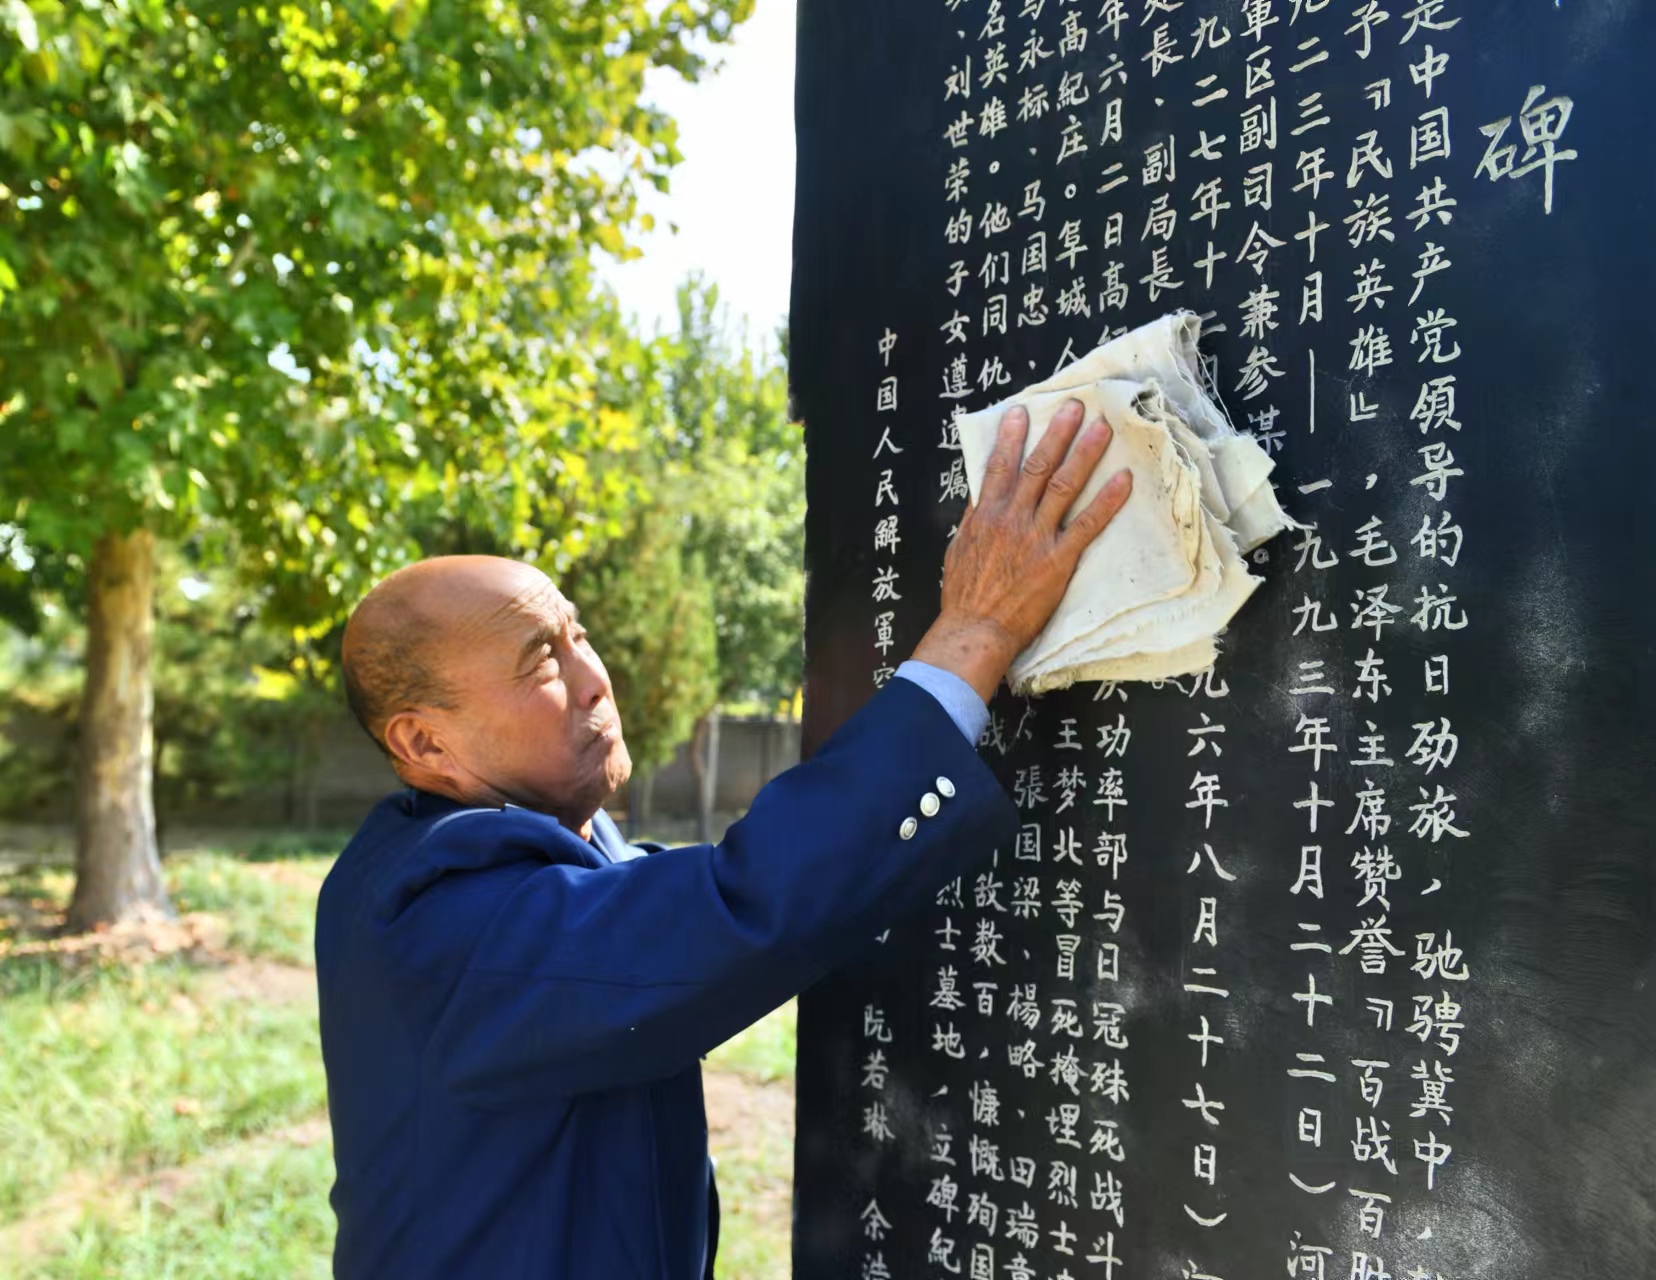 碑
中国共产党領导的抗日劲旅，驰骋冀中，
予『民族英雄』，毛泽东主席赞誉『百战百胜
二三年十月——一九九三年十月二十二日）河
軍区副司令兼参谋
九二七年十二月 九六年八月二十七日）
長、副局長
年六月二日高纪 功率部与日冠殊死战斗
高紀庄。阜城人 王梦北等冒死掩埋烈士
永标、马国忠、 張国梁、楊略、田瑞章
名英雄。他们同仇 战 敌数百，慷慨殉国
、刘世荣的子女遵遗嘱 烈士墓地，立碑紀
中国人民解放軍空 阮若琳 余浩